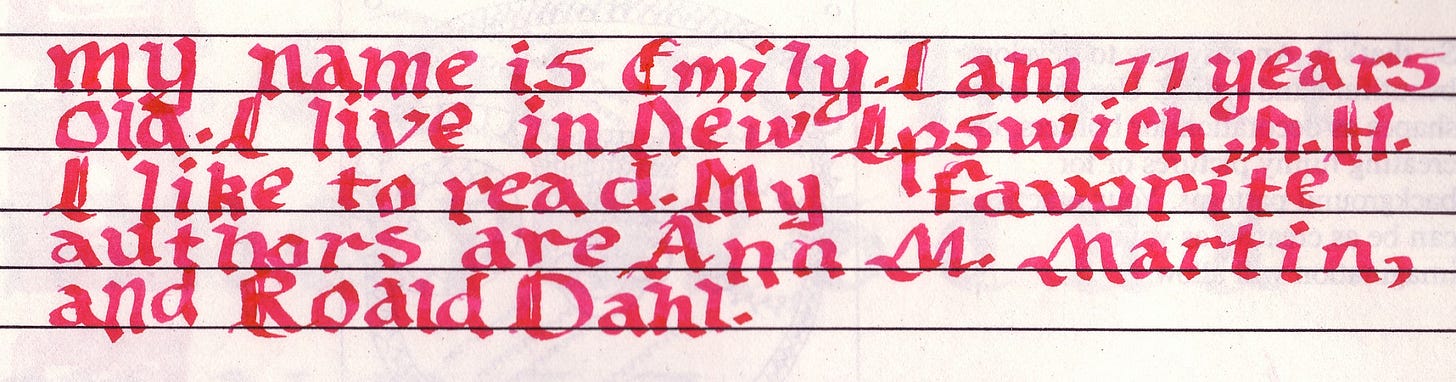 my name is Emily. I am 11 years
old. I live in New Ipswich, N.H.
I like to read. My favorite
authors are Ann M. Martin,
and Roald Dahl.